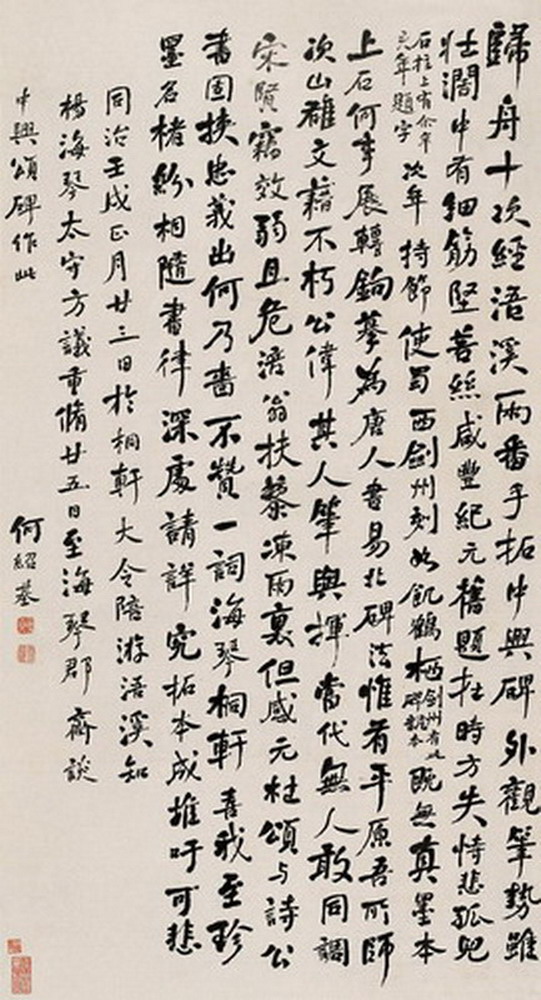 歸舟十次經浯溪兩番手拓中興碑外觀筆勢雖
壯闊中有細筋堅菩絲咸豐紀元舊題在時方失恃悲孤兒
石柱上有余辛
亥年題字
次年持節使蜀西劍州刻如飢鶴栖
劍州有此
碑翻本
既無真墨本
上石何事展轉鉤摹為唐人書易北碑法惟有平原吾所師
次山雄文藉不朽公偉其人筆與揮當代無人敢同調
宋賢竊效弱且危涪翁扶藜凍雨裏但感元杜頌与詩公
書固挾忠義出何乃嗇不贊一詞海琴桐軒喜我至珍
墨名楮紛相隨書律深處請詳究拓本成堆吁可悲
同治壬戌正月廿三日於桐軒大令陪游浯溪知
楊海琴太守方議重脩廿五日至海琴郡齋談
中興頌碑作此
何紹基